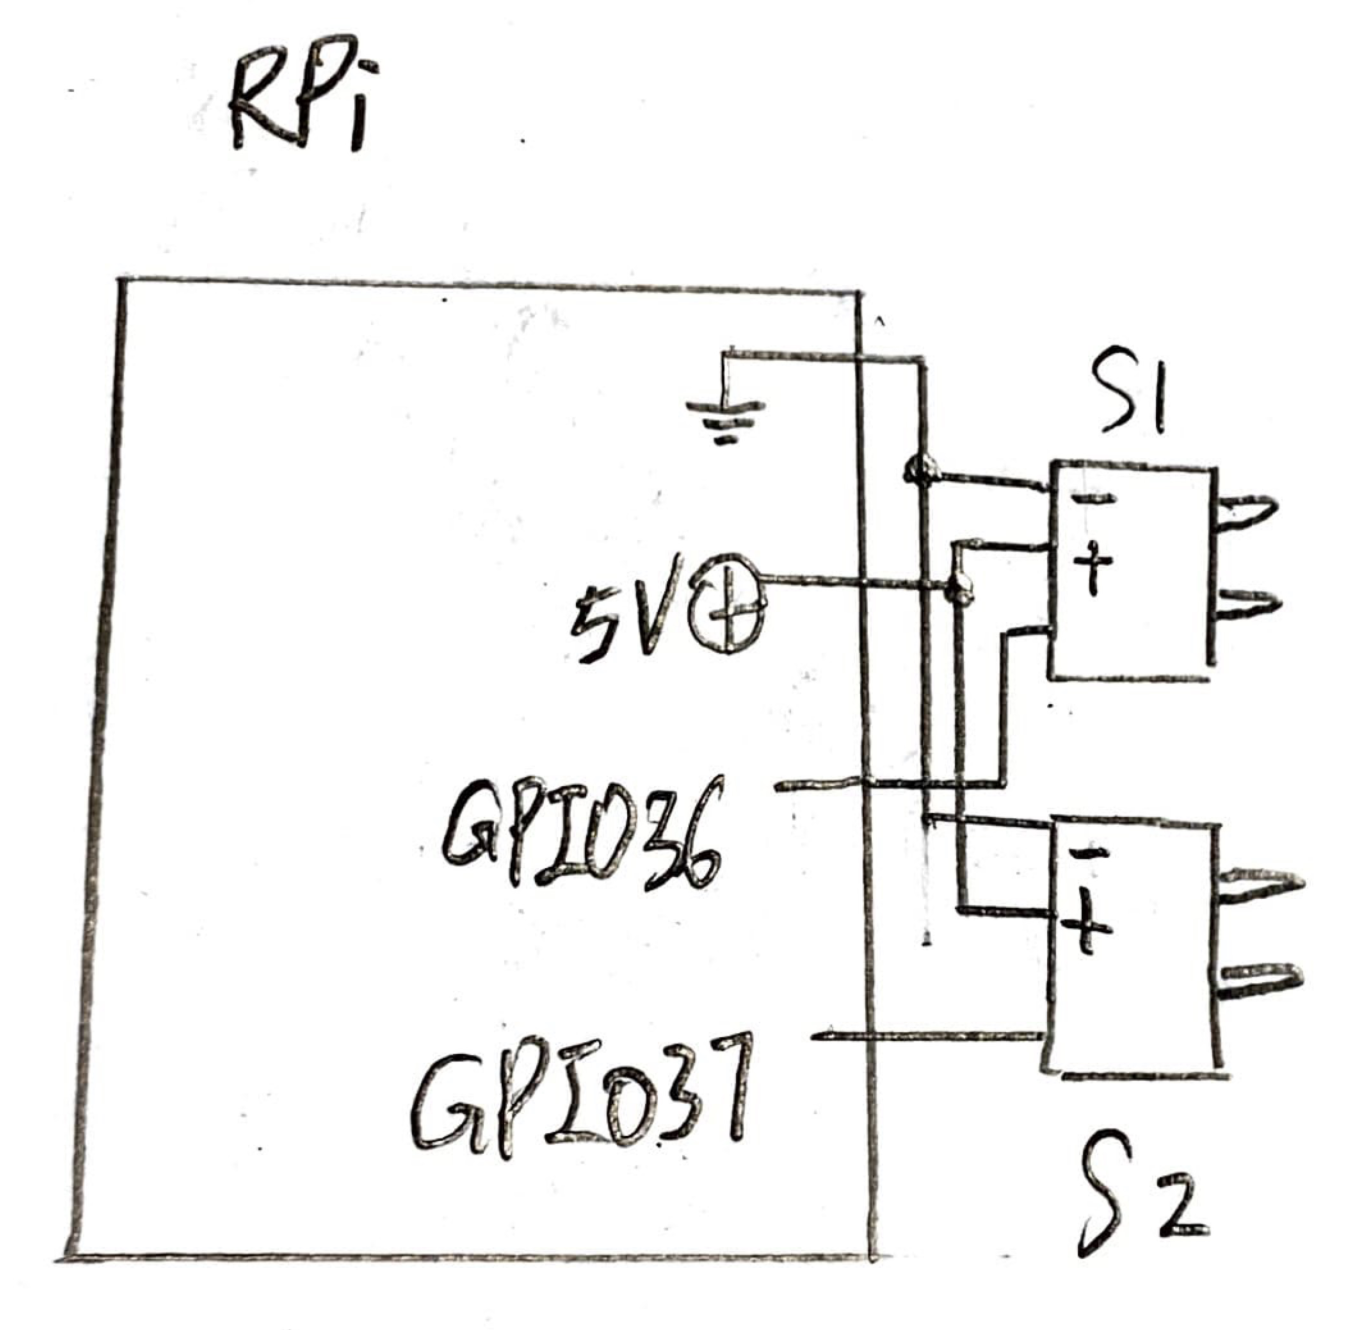 RPi
S1
-
+
5V
GPIO36
-
+
GPIO37
S2